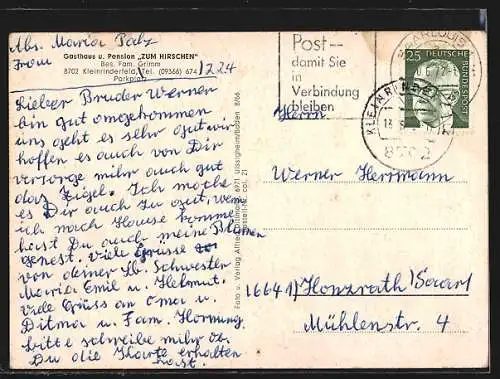 Abs. Maria Palz
From
Gasthaus u. Pension „ZUM HIRSCHEN"
Bes. Fam. Grimm
8702 Kleinrinderfeld, Tel. (09366) 674
Parkplatz
1224
Lieber Bruder Werner
bin gut omgekommen
uns geht es sehr gut wir
hoffen es auch von Dir
versorge mihr auch gut
daz Figel. Ich mache
es Dir auch zu gut, wen
ich nach Hause komme
hast Du auch meine Blumen
gegest. viele Grüsse
von deiner lb. Schwester
Maria Emil u. Helmut.
viele Grüss an Oma u.
Ditma u. Fam. Hornung.
bitte schreibe mihr ob
Du die Karte erhalten
hast.
Foto u. Verlag 6971 Uissigheim/Baden 8/66
col. 21
Post--
damit Sie
in
Verbindung
bleiben
SAARLOUIS
25
DEUTSCHE
BUNDESPOST
KLEINRINDERFELD
8702
Herrn
Werner Herrmann
6641 Honzrath/Saarl
Mühlenstr. 4